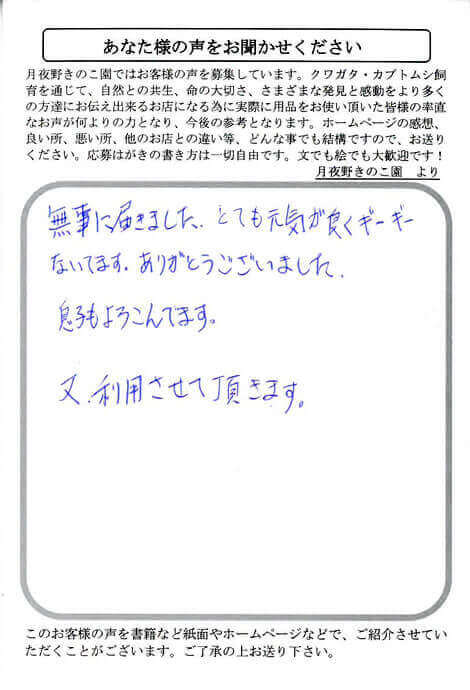 あなた様の声をお聞かせください
月夜野きのこ園ではお客様の声を募集しています。クワガタ・カブトムシ飼
育を通じて、自然との共生、命の大切さ、さまざまな発見と感動をより多く
の方達にお伝え出来るお店になる為に実際に用品をお使い頂いた皆様の率直
なお声が何よりの力となり、今後の参考となります。ホームページの感想、
良い所、悪い所、他のお店との違い等、どんな事でも結構ですので、お送り
ください。応募はがきの書き方は一切自由です。文でも絵でも大歓迎です！
月夜野きのこ園　より
無事に届きました、とても元気が良くギーギー
ないてます。ありがとうございました。
息子もよろこんでます。
又、利用させて頂きます。
このお客様の声を書籍など紙面やホームページなどで、ご紹介させてい
ただくことがございます。ご了承の上お送り下さい。